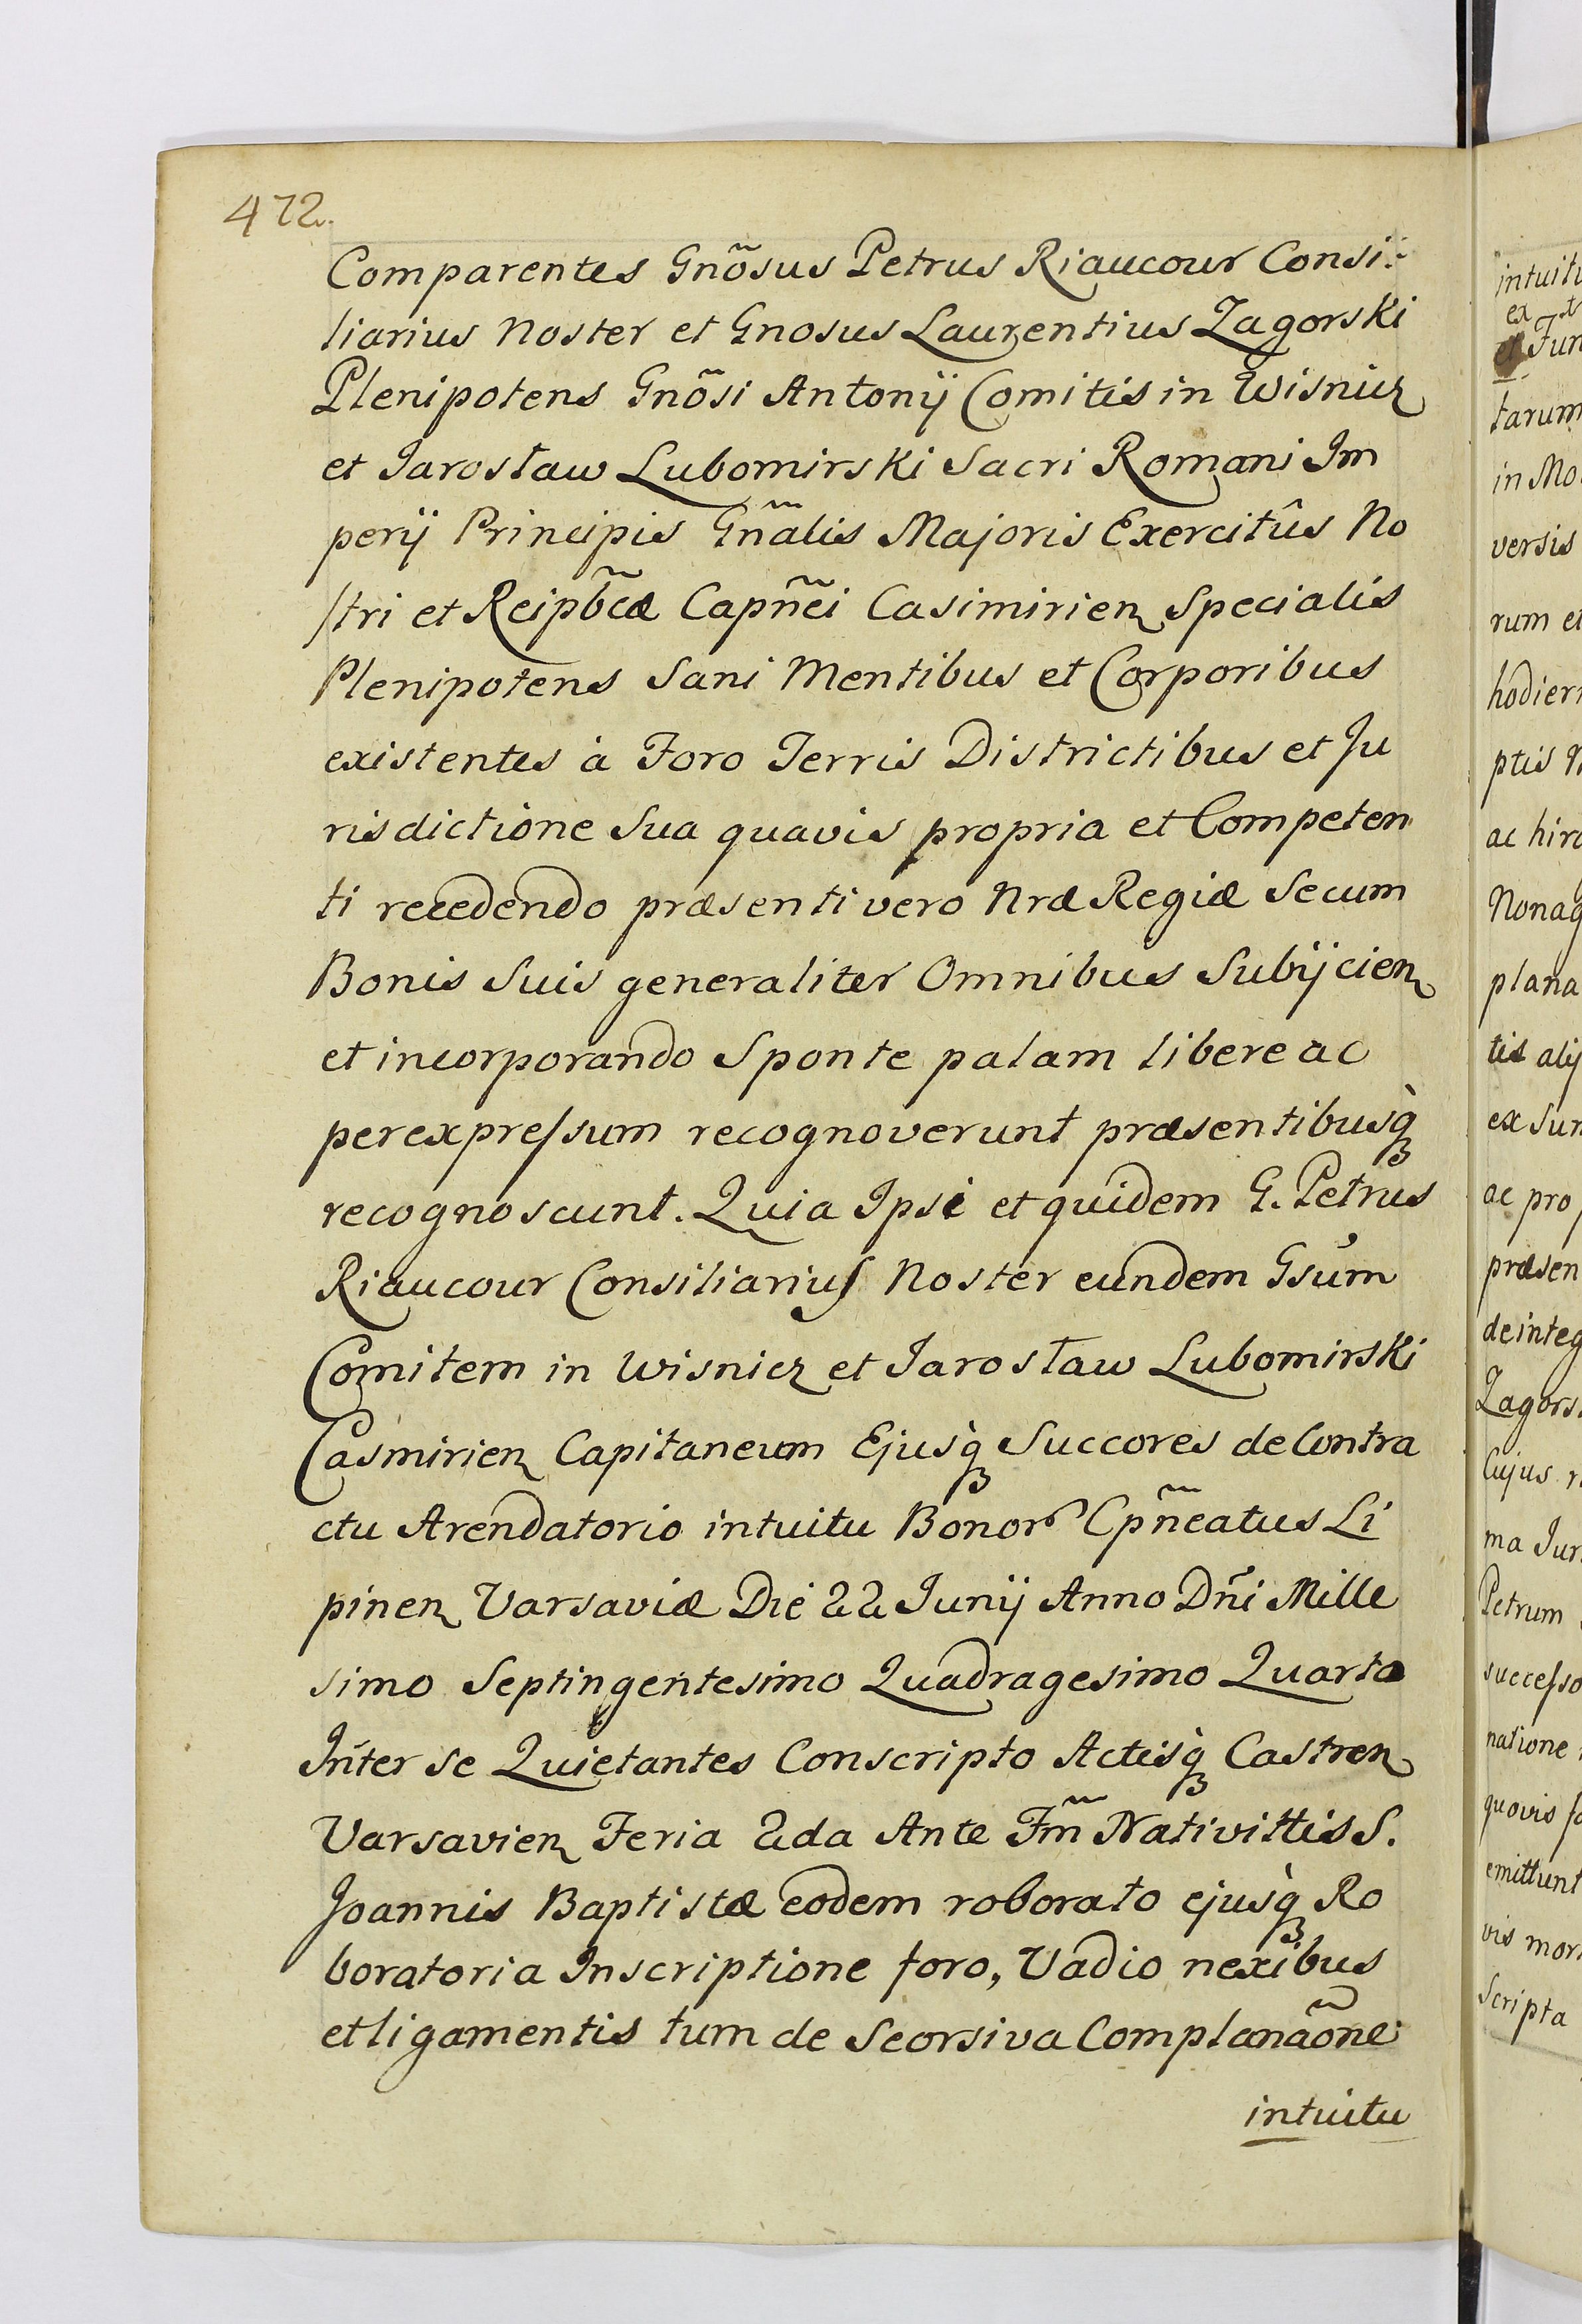 472.
Comparentes Gnõsus Petrus Riaucour Consi:
liarius Noster et Gnosus Laurentius Zagorski
Plenipotens Gnõsi Antonij Comitis in Wisnicz
et Jarosław Lubomirski Sacri Romani Im
perij Principis Gñalis Majoris Exercitûs No
stri et Reipb̃cæ Capñei Casimirien Specialis
Plenipotens Sani Mentibus et Corporibus
existentes à Foro Terris Districtibus et Ju
risdictione Sua quavis propria et Competen
ti recedendo præsenti vero Nræ Regiæ Secum
Bonis Suis generaliter Omnibus Subijcien
et incorporando Sponte palam libere ac
perexpressum recognoverunt præsentibusq̀
recognoscunt. Quia Ipsi et quidem G. Petrus
Riaucour Consiliarius Noster eundem Gsum
Comitem in Wisnicz et Jarosław Lubomirski
Casmirien Capitaneum Ejusq̀ Succores de Contra
ctu Arendatorio intuitu Bonor Cpñeatus Li
pinen Varsaviæ Die 22 Junij Anno Dñi Mille
simo Septingentesimo Quadragesimo Quarto
Inter se Quietantes Conscripto Actisq̀ Castren
Varsavien Feria 2da Ante Fm̃ Nativittis S.
Joannis Baptistæ eodem roborato ejusq̀ Ro
boratoria Inscriptione foro, Vadio nexibus
et ligamentis tum de Seorsiva Complanaõne
intuitu
intuitu
ex
tarum
in Mo
versis
rum et
hodiern
ptis
ac hiro
Nonag
plana
tis alij
ex Sum
ac pro
præsen
de integ
Zagors
Cujus r
ma Jur
Petrum
successo
natione
quovis fo
emittunt
vis mor
Scripta